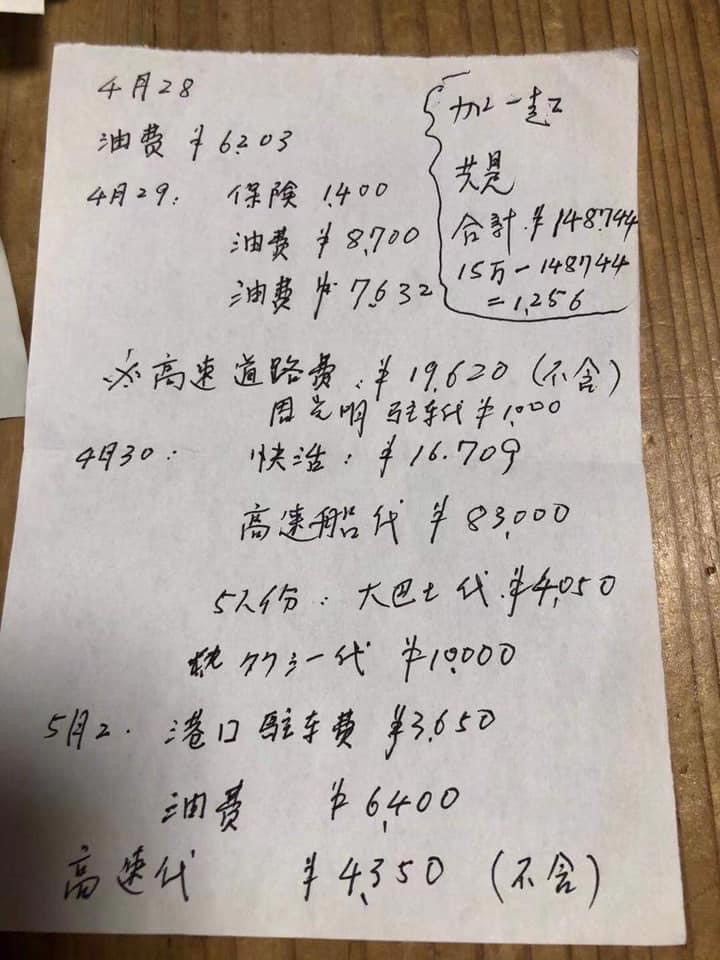 4月28
油费 ¥6,203
4月29: 保険 1,400
油费 ¥8,700
油费 ¥7,632
加一起
共是
合計.¥148,744
15万-148744
=1,256
※高速道路费:¥19,620(不含)
周光明 駐车代¥1,000
4月30: 快活:¥16.709
高速船代 ¥83,000
5人份:大巴士代.¥4,050
タクシー代 ¥10,000
5月2. 港口駐车費 ¥3,650
油费 ¥6,400
高速代 ¥4,350 (不含)